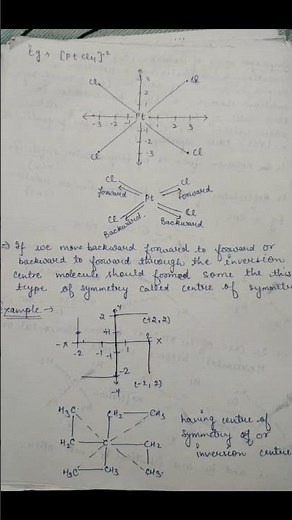 Eg → [PtCl4]-2
Cl Cl
3
2
1
-3 -2 -1 Pt 1 2 3
-1
-2
-3
Cl Cl
Cl Cl
forward forward
Pt
Cl Cl
Backward Backward
If we move backward forward to forward or
backward to forward through the inversion
centre molecule should formed same the this
type of symmetry called centre of symmetry
Example →
y
2 (+2,2)
+1
-x -2 -1 1 2 x
-1
-2
-y (-2,2)
H3C CH2 CH3
H2C C CH2
H3C CH3 CH3
having centre of
symmetry of or
inversion centre